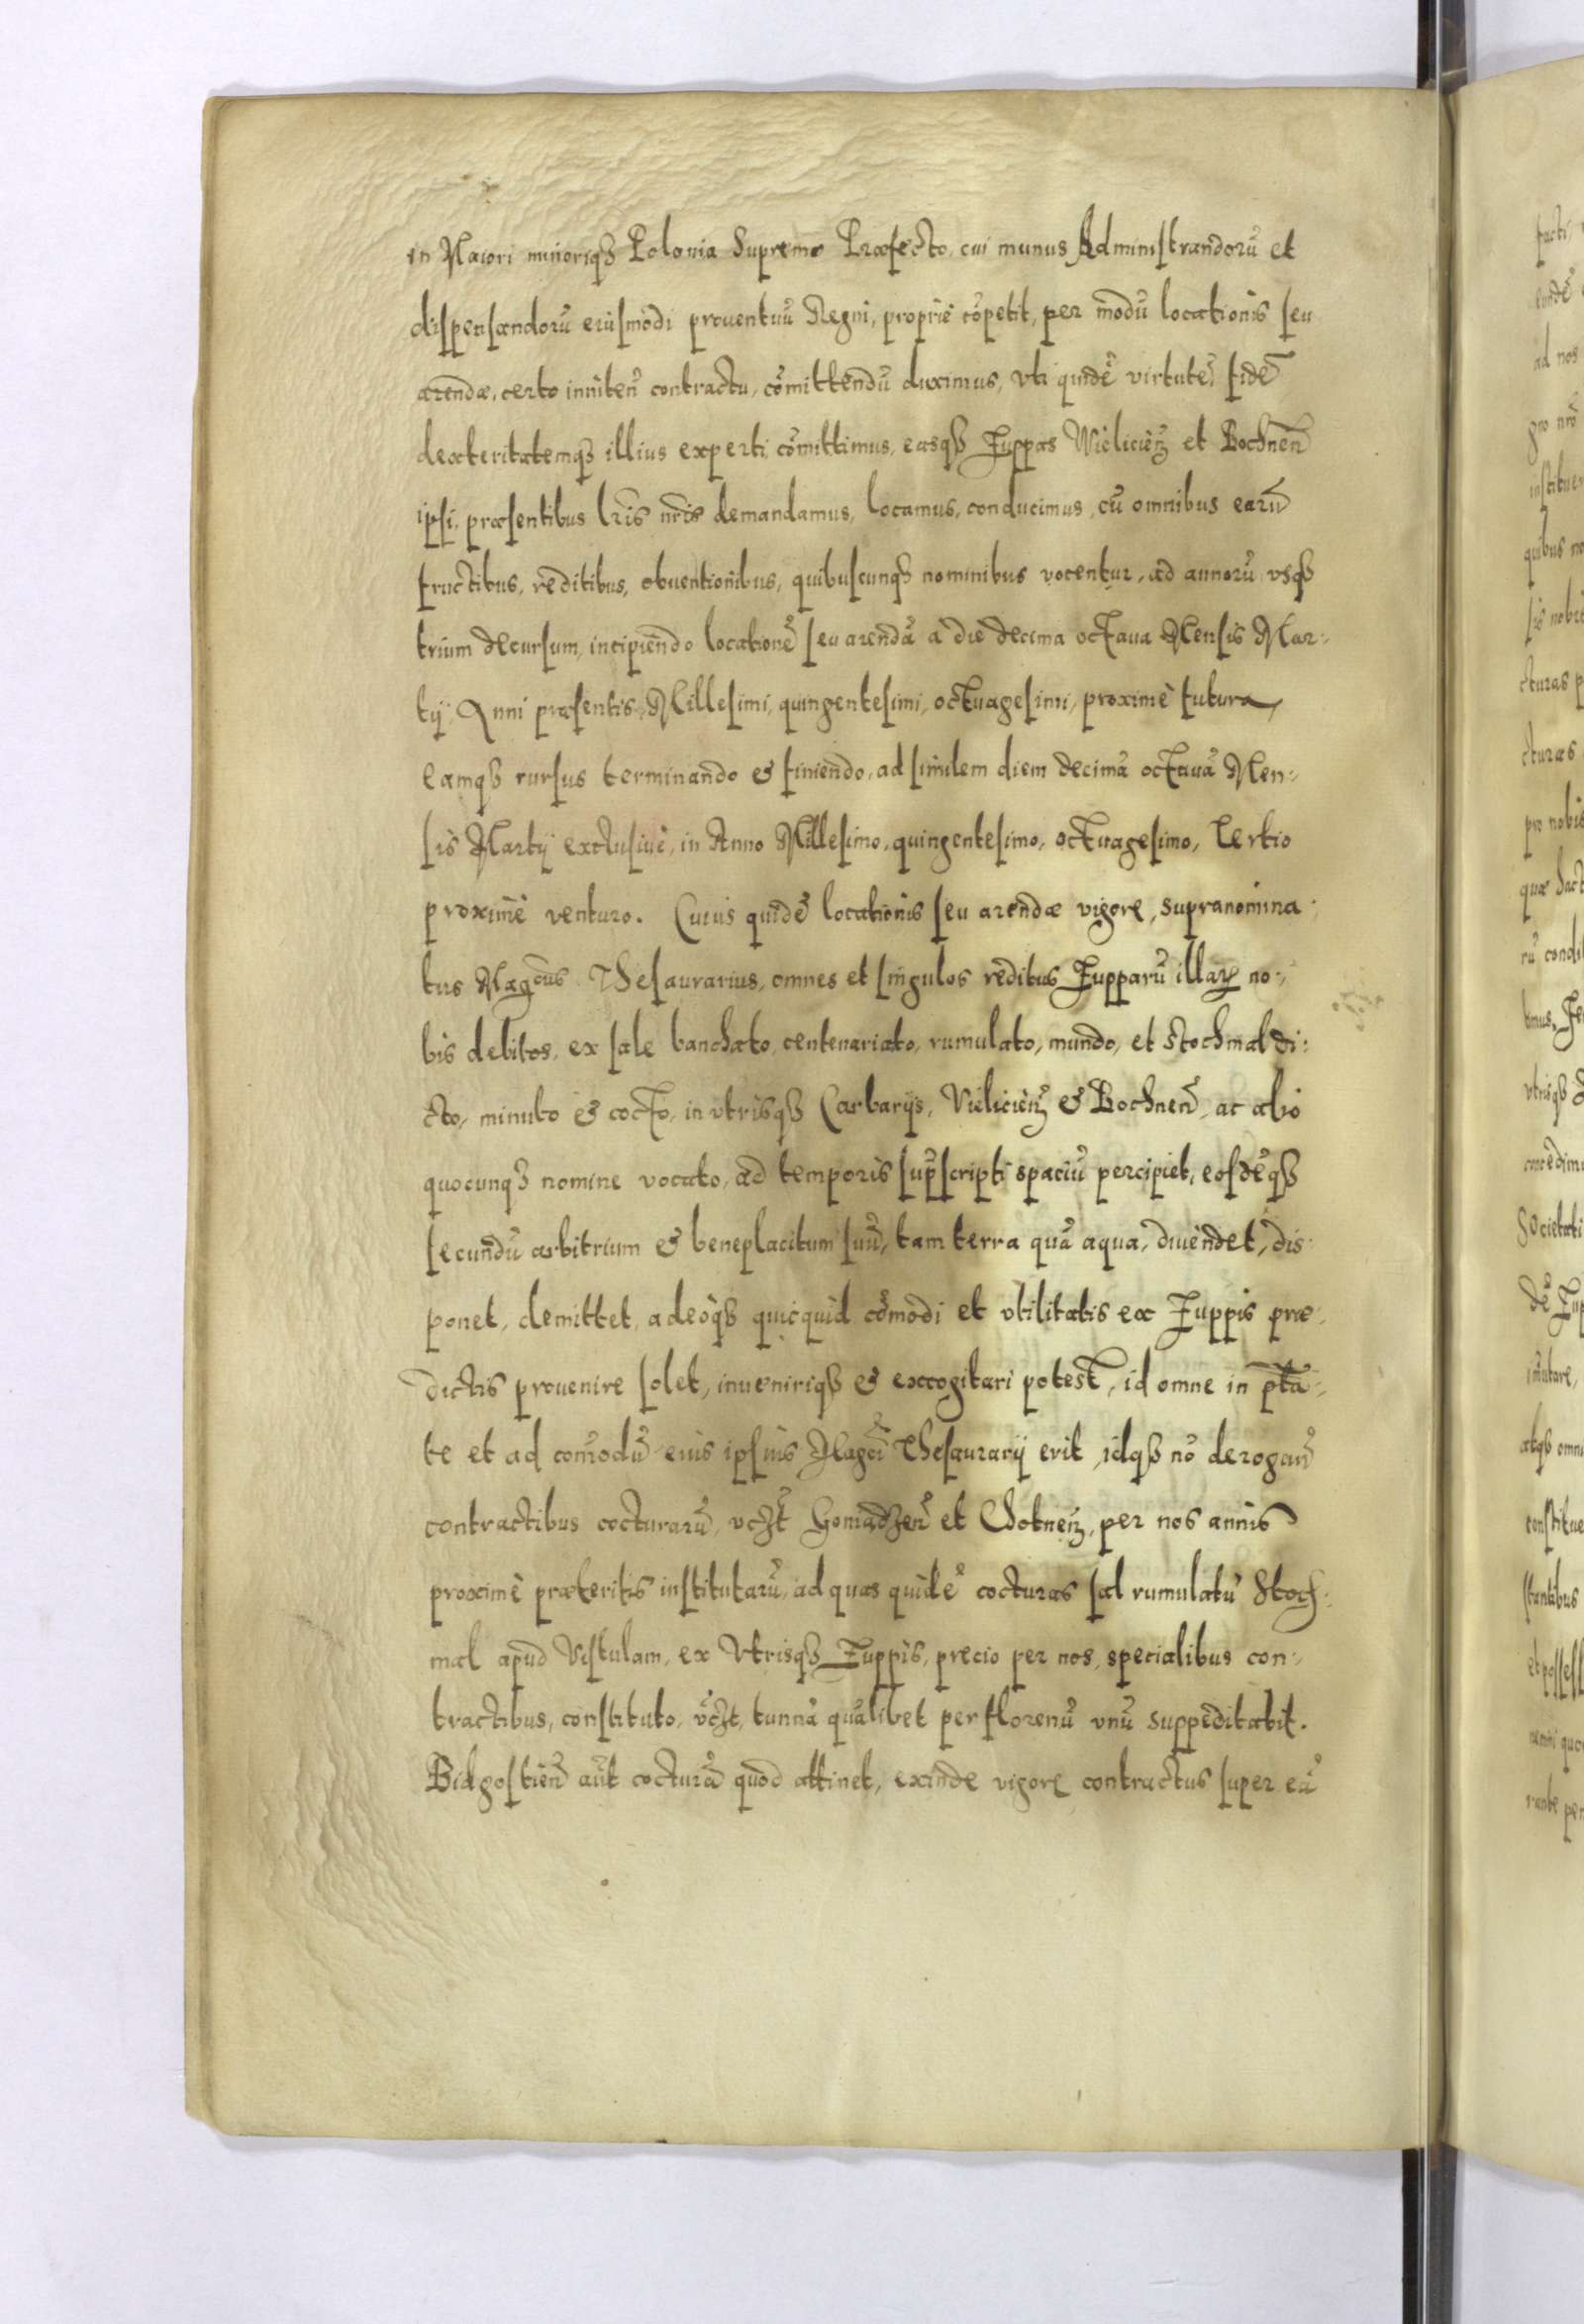 in Maiori minoriqȝ Polonia Supremo Præfecto, cui munus Administrandorū et
dispensandorū eiusmodi prouentuū Regni, propriè cōpetit, per modū locationis seu
arendæ, certo inniteñ contractu, cōmittendū duximus, vti quidē virtutē, fidē
dexteritatemqȝ illius experti cōmittimus, easqȝ Zuppas Vieliciēn et Bochneñ
ipsi, præsentibus lr̄is nr̄is demandamus, locamus, conducimus, cū omnibus earū
fructibus, reditibus, obuentionibus, quibuscunqȝ nominibus vocentur, ad annorū vsqȝ
trium decursum, incipiendo locationē seu arendā a die decima octaua Mensis Mar-
tij, Anni præsentis, Millesimi, quingentesimi, octuagesimi, proximè futura,
eamqȝ rursus terminando & finiendo, ad similem diem decimā octauā Men-
sis Martij exclusiuè, in Anno Millesimo, quingentesimo, octuagesimo, Tertio
proximè venturo. Cuius quidē locationis seu arendæ vigore, supranomina-
tus Mag̃cus Thesaurarius, omnes et singulos reditus Zupparū illaꝝ no-
bis debitos, ex sale banchato, centenariato, rumulato, mundo, et Stochmal di-
cto, minuto & cocto, in vtrisqȝ Carbarijs, Vieliciēn & Bochneñ, ac alio
quocunqȝ nomine vocato, ad temporis sup̄scripti spaciū percipiet, eosdēqȝ
secundū arbitrium & beneplacitum suū, tam terra quā aqua, diuendet, dis-
ponet, demittet, adeòqȝ quicquid cōmodi et vtilitatis ex Zuppis præ-
dictis prouenire solet, inueniriqȝ & excogitari potest, id omne in ptā-
te et ad comodū eius ipsius Mag̃ci Thesaurarij erit, idqȝ nō derogan̄
contractibus cocturarū, vcZt̄ Goniadzeñ et Chotneñ, per nos annis
proximè præteritis institutarū, ad quas quidē cocturas sal rumulatū Stoch-
mal apud Vistulam, ex Vtrisqȝ Zuppis, precio per nos, specialibus con-
tractibus, constituto, vcZt̄, tunnā quālibet per florenū vnū suppeditabit.
Bidgostieñ aūt cocturā quod attinet, exinde vigore contractus super eā